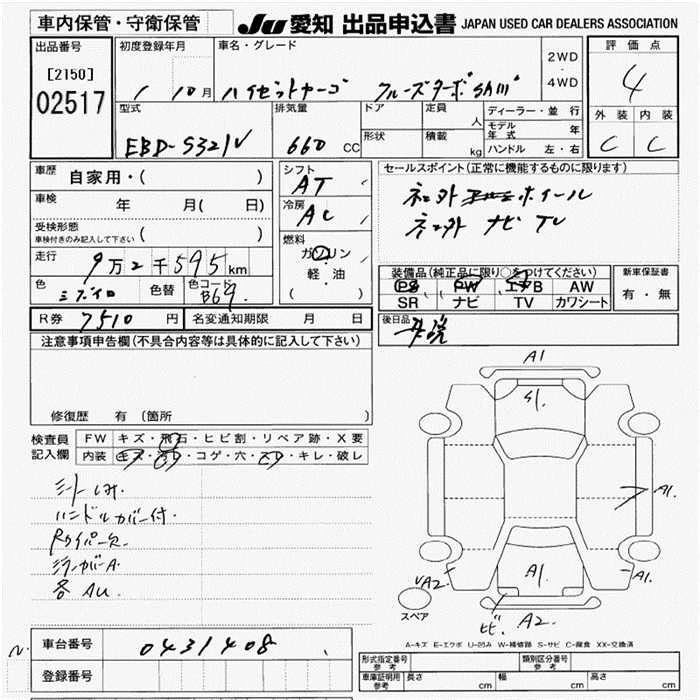 車内保管・守衛保管
JU 愛知 出品申込書 JAPAN USED CAR DEALERS ASSOCIATION
出品番号
[2150]
02517
初度登録年月
1 10月
車名・グレード
ハイゼットカーゴ クルーズターボ SAⅢ
2WD
・
4WD
評価点
4
外装 内装
C C
型式
EBD-S321V
排気量
660 CC
ドア
形状
定員
人
積載
kg
ディーラー・並行
モデル年式 年
ハンドル 左・右
車歴 自家用・( )
車検 年 月( 日)
受検形態
車検付きのみ記入して下さい ( )
走行 9万2千595km
色 ミズイロ 色替 色コード B69
シフト
AT
冷房
AC
燃料
ガソリン
軽・油
( )
セールスポイント(正常に機能するものに限ります)
社外 ホイール
社外 ナビ TV
装備品(純正品に限り○をつけてください)
PS PW エアB AW
SR ナビ TV カワシート
新車保証書
有・無
R券 7510円 名変通知期限 月 日
後日品
注意事項申告欄(不具合内容等は具体的に記入して下さい)
修復歴 有(箇所 )
検査員
記入欄
FW キズ・飛石・ヒビ割・リペア跡・X要
内装 キズ・汚れ・コゲ・穴・スレ・キレ・破レ
シートしみ.
ハンドルカバー付.
Rワイパー欠.
ミラーカバーA.
各AU.
A1
S1.
A1.
A1.
A1.
A2
ヒビ.
A2
スペア
A-キズ E-エクボ U-凹み W-補修跡 S-サビ C-腐食 XX-交換済
車台番号 0431408
登録番号
形式指定番号
参考
類別区分番号
参考
車庫証明用
参考
長さ cm 幅 cm 高さ cm